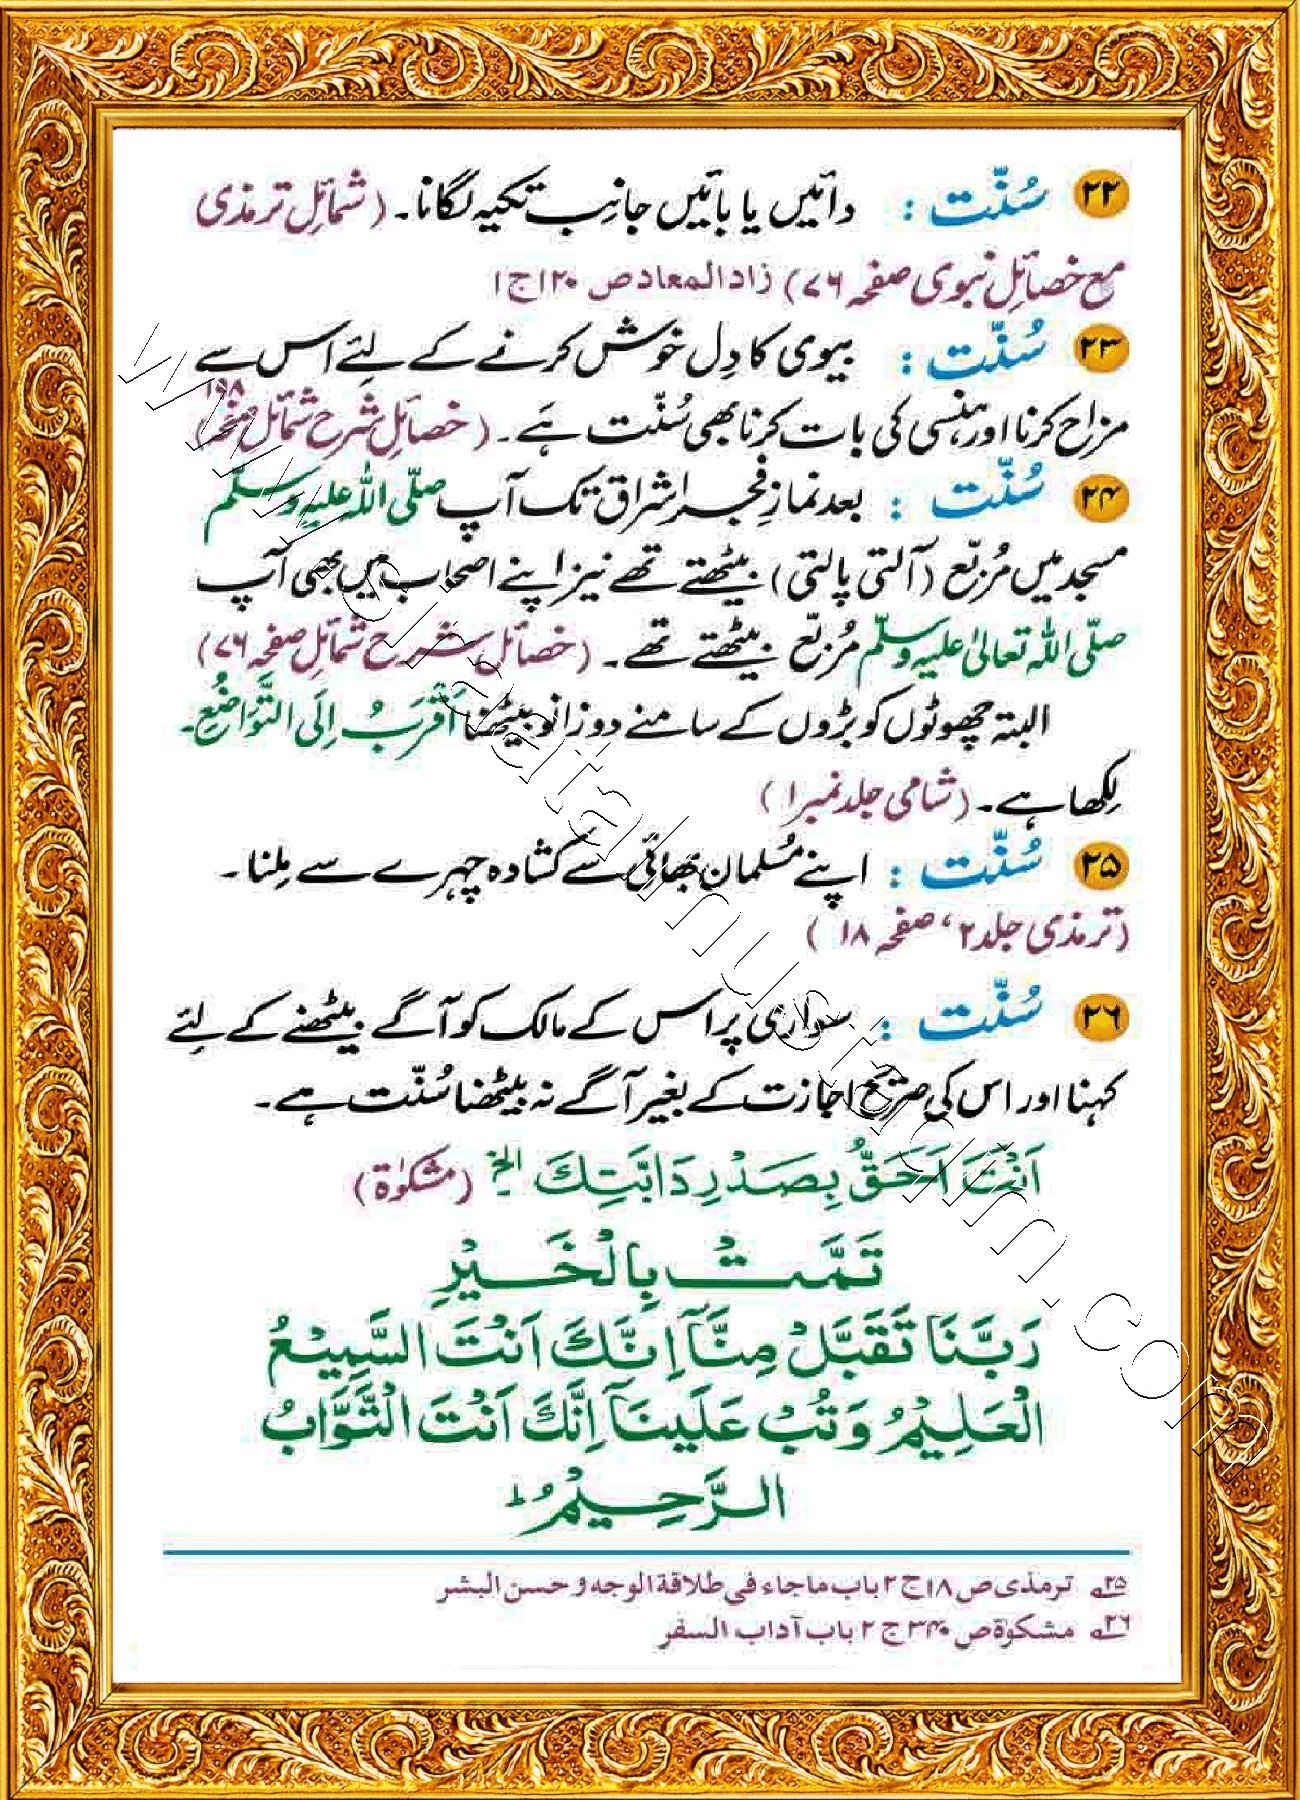 ۲۲ سُنّت : دائیں یا بائیں جانب تکیہ لگانا۔ (شمائلِ ترمذی
مع خصائلِ نبوی صفحہ ۷۶) زاد المعاد ص ۱۲۰ ج ۱
۲۳ سُنّت : بیوی کا دِل خوش کرنے کے لئے اس سے
مزاح کرنا اور ہنسی کی بات کرنا بھی سُنّت ہے۔ (خصائلِ شرح شمائل صفحہ
۲۴ سُنّت : بعد نمازِ فجر اشراق تک آپ صلّی اللہ علیہ وسلّم
مسجد میں مُربّع (آلتی پالتی) بیٹھتے تھے نیز اپنے اصحاب میں بھی آپ
صلّی اللہ تعالیٰ علیہ وسلّم مُربّع بیٹھتے تھے۔ (خصائل شرح شمائل صفحہ ۷۶)
البتہ چھوٹوں کو بڑوں کے سامنے دو زانو بیٹھنا اَقْرَبُ اِلَی التَّوَاضُعِ۔
لِکھا ہے۔ (شامی جلد نمبر ۱)
۲۵ سُنّت : اپنے مُسلمان بھائی سے کشادہ چہرے سے مِلنا۔
(ترمذی جلد ۲، صفحہ ۱۸)
۲۶ سُنّت : سواری پر اس کے مالک کو آگے بیٹھنے کے لئے
کہنا اور اس کی صریح اجازت کے بغیر آگے نہ بیٹھنا سُنّت ہے۔
اَنْتَ اَحَقُّ بِصَدْرِ دَابَّتِكَ الخ (مشکوٰۃ)
تَمَّتْ بِالْخَيْرِ
رَبَّنَا تَقَبَّلْ مِنَّآ اِنَّكَ اَنْتَ السَّمِيْعُ
الْعَلِيْمُ وَتُبْ عَلَيْنَآ اِنَّكَ اَنْتَ التَّوَّابُ
الرَّحِيْمُ ط
۲۵ ترمذی ص ۱۸ ج ۲ باب ماجاء فی طلاقة الوجه و حسن البشر
۲۶ مشكوة ص ۳۴۰ ج ۲ باب آداب السفر